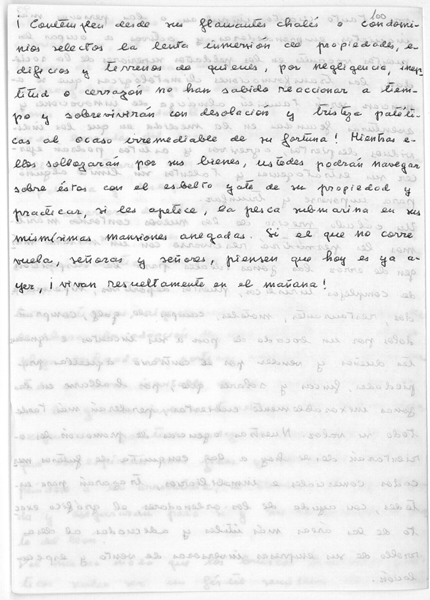 100
¡ Contemplen desde su flamante chalés o condomi-
nios selectos la lenta inmersión de propiedades, e-
dificios y terrenos de quienes, por negligencia, inep-
titud o cerrazón no han sabido reaccionar a tiem-
po y sobrevivirán con desolación y tristeza patéti-
cas al ocaso irremediable de su fortuna! Mientras e-
llos sollozarán por sus bienes, ustedes podrán navegar
sobre éstos con el esbelto yate de su propiedad y
practicar, si les apetece, la pesca submarina en sus
mismísimas mansiones anegadas. Si el que no corre
vuela, señoras y señores, piensen que hoy es ya a-
yer, ¡ vivan resueltamente en el mañana!